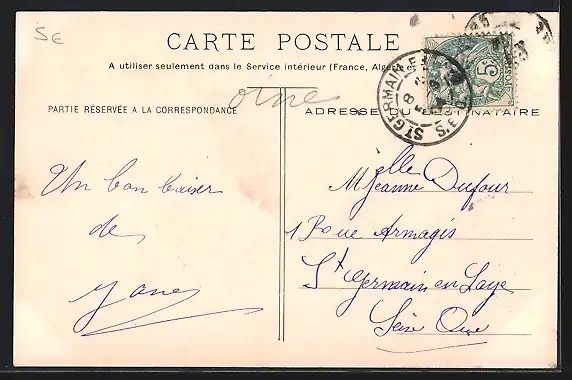 5E
CARTE POSTALE
A utiliser seulement dans le Service intérieur (France, Algérie et
orne
PARTIE RÉSERVÉE A LA CORRESPONDANCE
ADRESSE DU DESTINATAIRE
5c
POSTES
ST GERMAIN-E
8
Un bon baiser
de
Melle Jeanne Dufour
1 Rue Armagis
St Germain en Laye
Seine Oise